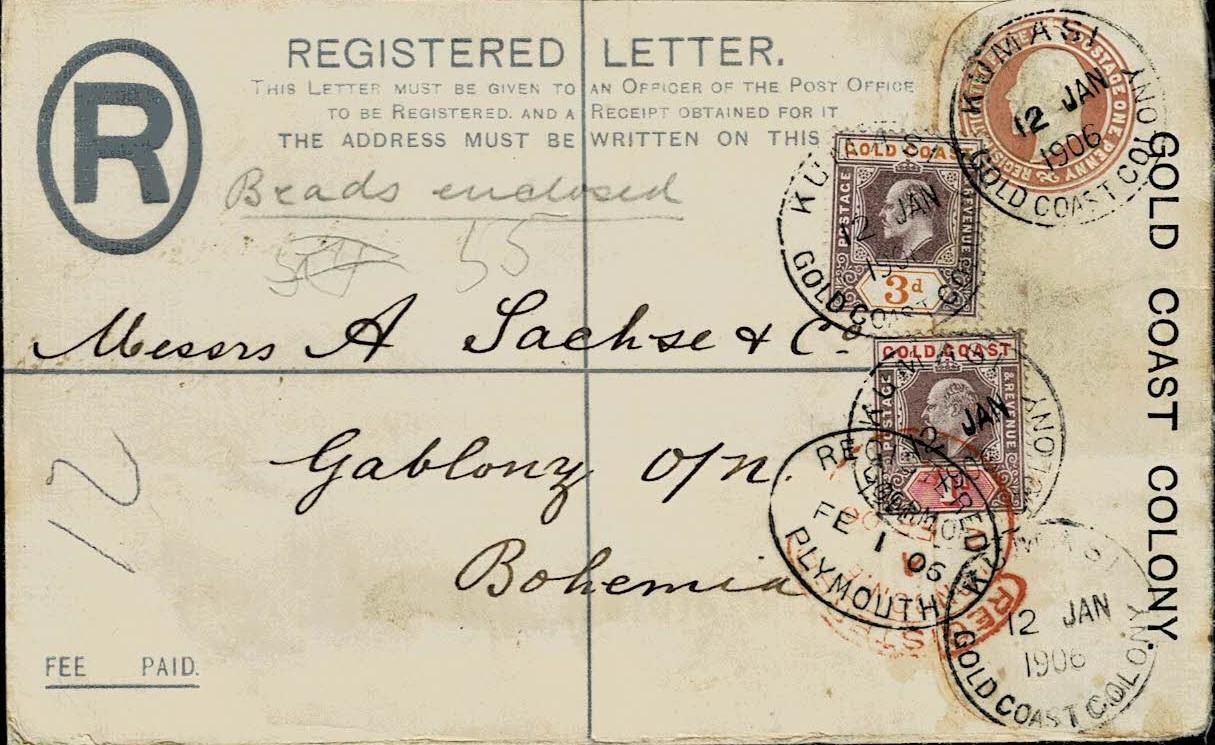 R
REGISTERED LETTER.
THIS LETTER MUST BE GIVEN TO AN OFFICER OF THE POST OFFICE
TO BE REGISTERED. AND A RECEIPT OBTAINED FOR IT
THE ADDRESS MUST BE WRITTEN ON THIS
Beads enclosed
55
Messrs A Sachse & Co.
Gablonz o/n.
Bohemia
12
FEE PAID.
GOLD COAST COLONY.
POSTAGE ONE PENNY
KUMASI
12 JAN
1906
GOLD COAST COLONY
GOLD COAST
POSTAGE
& REVENUE
3d
KUMASI
12 JAN
GOLD COAST CO
GOLD COAST
POSTAGE
& REVENUE
12 JAN
COLONY
REGISTERED
FE 1 06
PLYMOUTH
REG
12 JAN
1906
GOLD COAST COLONY